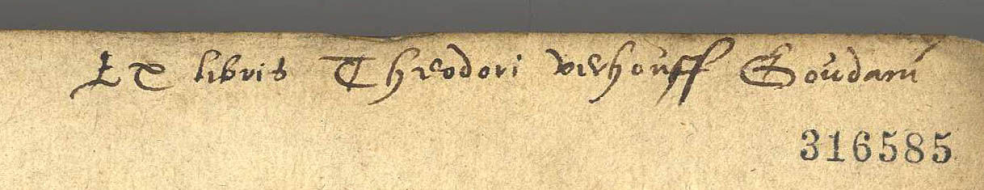 Ex libris Theodori verhouff Goudani
316585